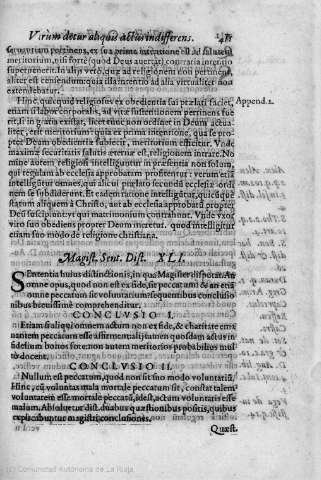 Vtrum detur aliquis actus indifferens.
votum pertinens, ex sua prima intentione est ad salutem
meritorium, nisi forte (quod Deus auertat) contraria intentio
superuenerit. In alijs verò, quæ ad religionem non pertinent,
aliter est censendum: quia illa intentio ad alia virtualiter non
extendebatur.
Hinc, quicquid religiosus ex obedientia sui prælati faciet,
etiam si labor corporalis, ad vitæ sustentationem pertinens fue
rit, si in gratia existat, licet non ordinet in Deum actua
liter, est ei meritorium: quia ex prima intentione, qua se pro-
pter Deum obedientiæ subiecit, meritorium efficitur. Vnde
maximæ securitatis salutis æternæ est, religionem intrare. No
mine autem religiosi intelliguntur in præsentia non solum,
qui regulam ab ecclesia approbatam profitentur: verum etia
intelliguntur omnes, qui alicui prælato secundum ecclesiæ ordi
nem se subdiderint. Et eadem ratione intelligetur, quicunque
statum aliquem à Christo, aut ab ecclesia approbatũ propter
Deũ suscipiunt: vt qui matrimonium contrahunt. Vnde vxor
viro suo obediens propter Deum meretur. quod intelligitur
etiam suo modo de religione christiana.
Append.2.
Magist. Sent. Dist. XLI.
Sententia huius distinctionis, in qua Magister disputat, An
omne opus, quod non est ex fide, sit peccatum: & an etiã
omne peccatum sit voluntarium: sequentibus conclusio
nibus breuissimè comprehenditur.
CONCLVSIO I.
Etiam si aliqui omnem actum non ex fide, & charitate ema
nantem peccatum esse affirment: aliqui tamen quosdam actus in
fidelium bonos fore: non autem meritorios probabilius mul
tò docent.
CONCLVSIO II.
Nullum est peccatum, quod non sit suo modo voluntariũ.
Hinc, cũ voluntas mala mortale peccatum sit, constat talem
voluntatem esse mortale peccatũ, idest, actum voluntatis esse
malum. Absoluetur dist. duabus quæstionibus positis, quibus
explicabuntur magistri conclusiones.
Quæst.
(c) Comunidad Autónoma de La Rioja